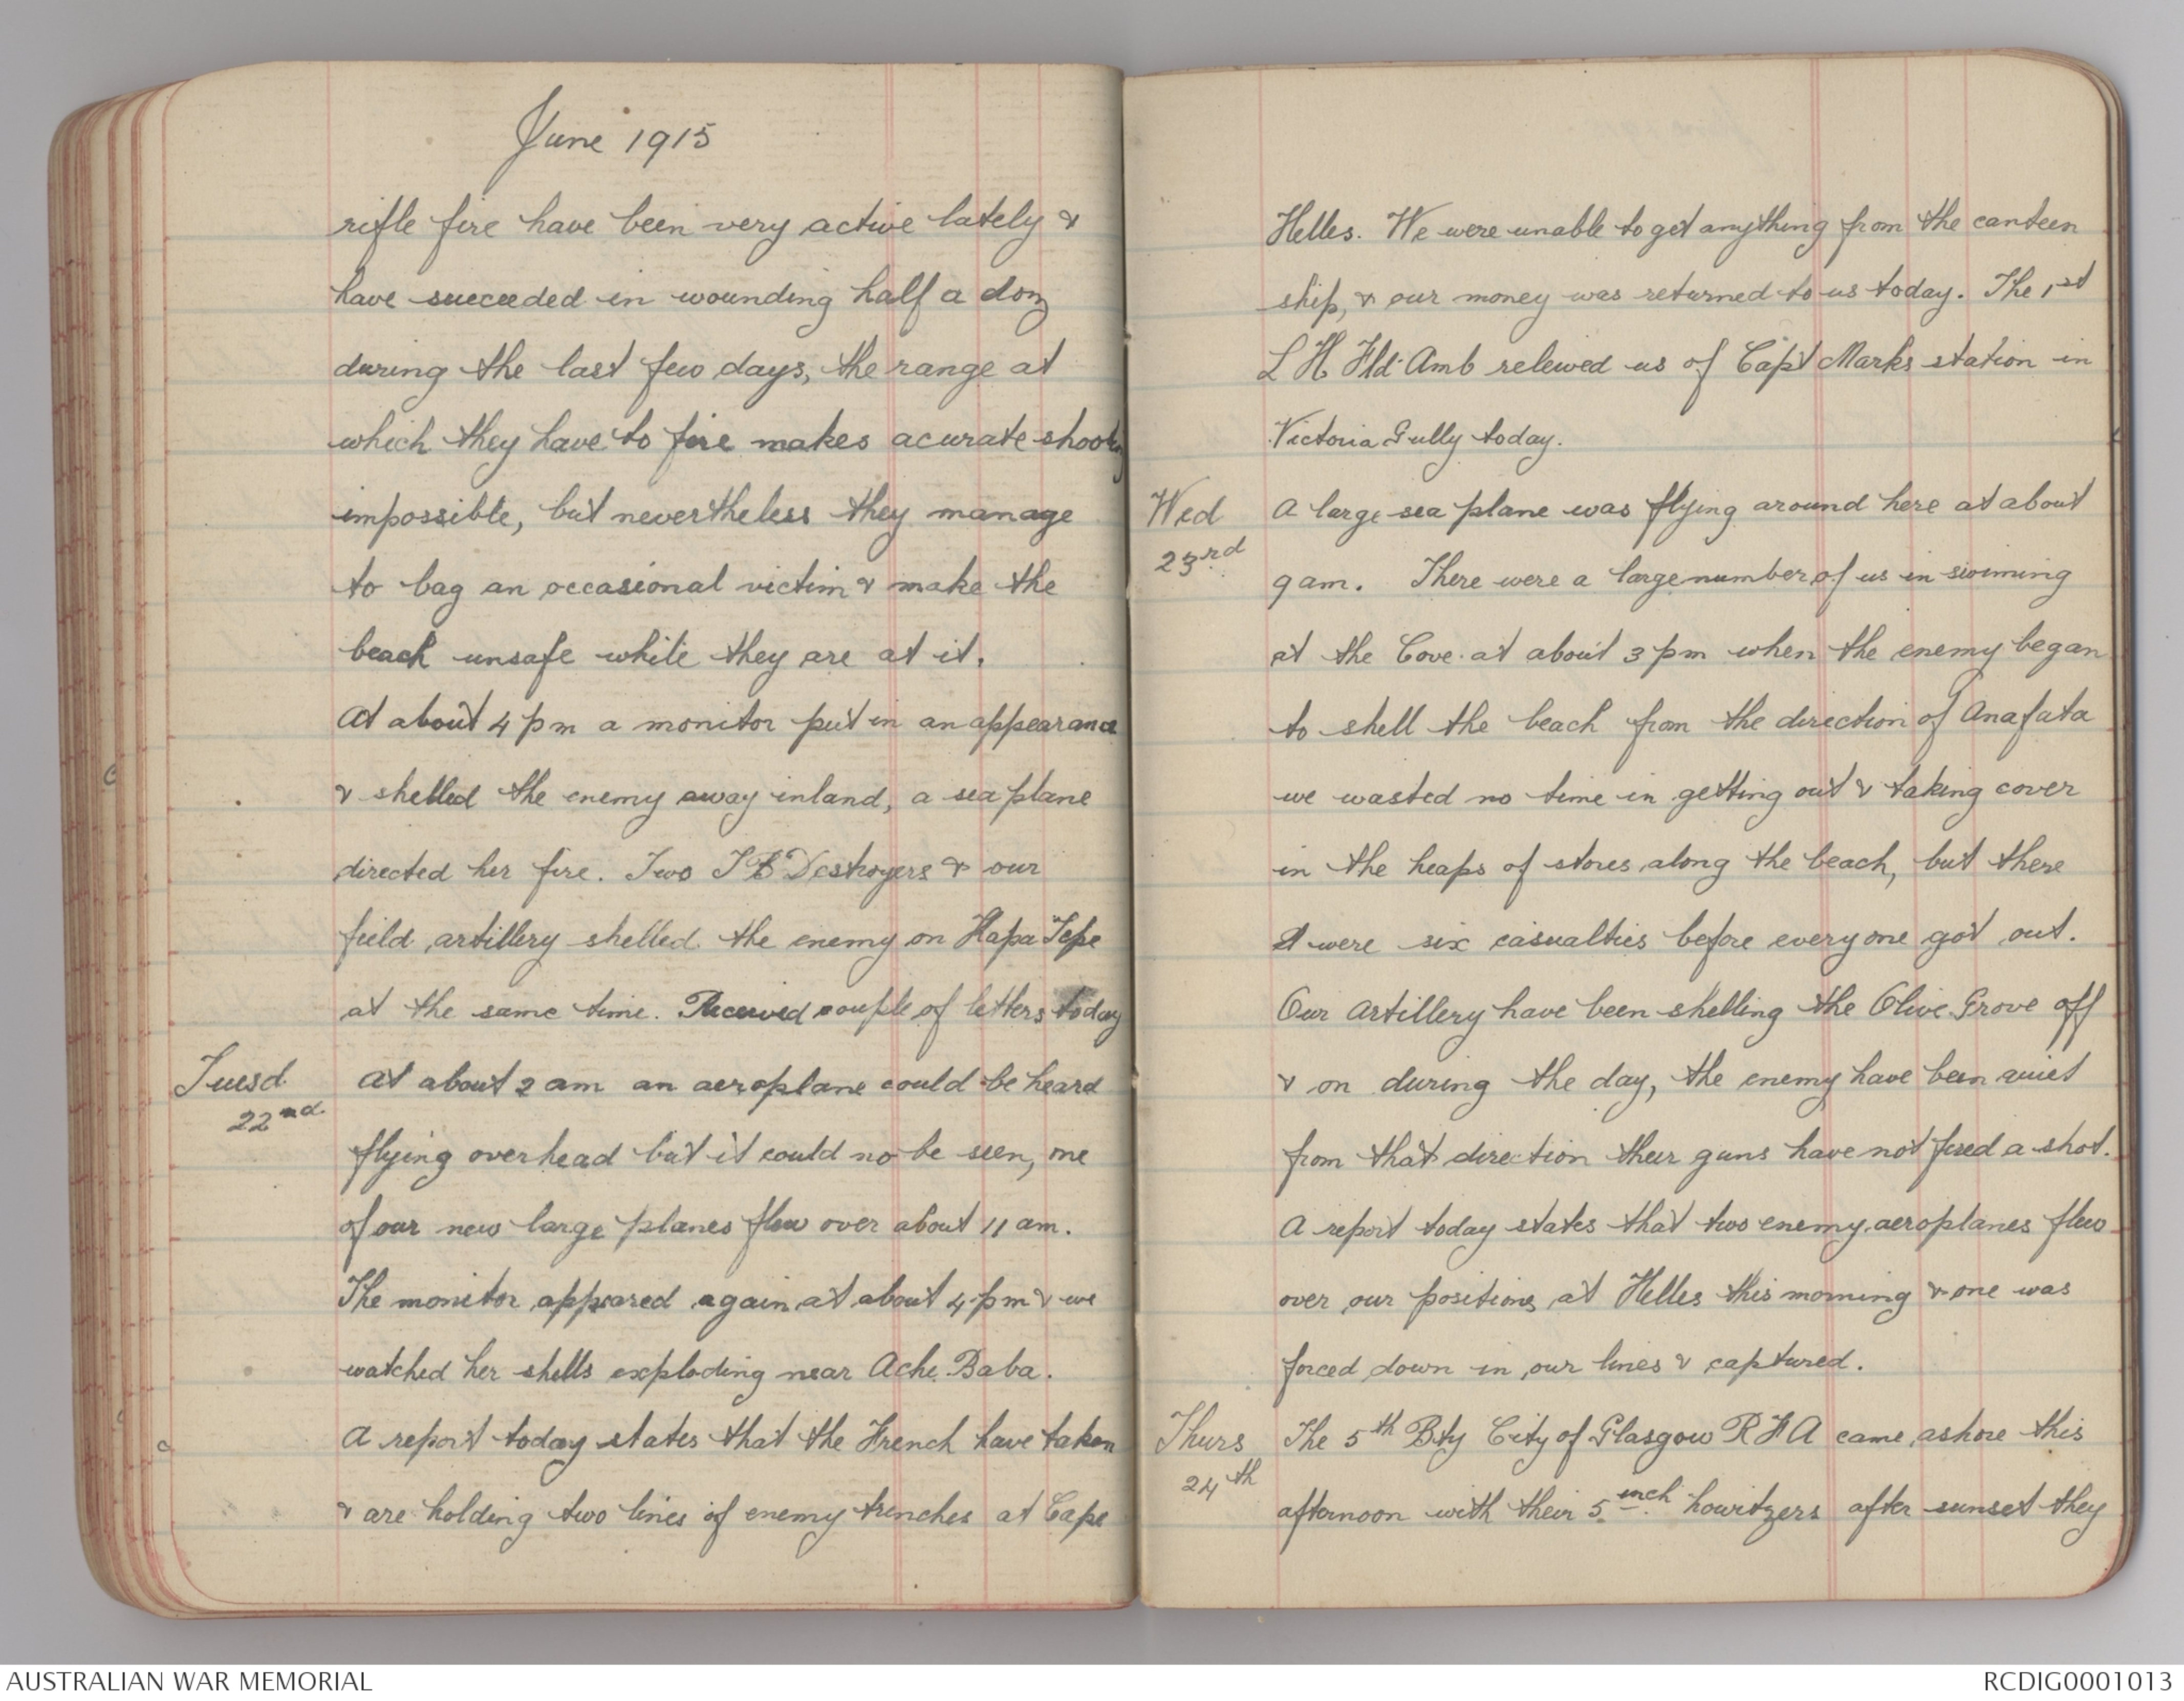 June 1915
rifle fire have been very active lately &
have succeeded in wounding half a doz
during the last few days, the range at
which they have to fire makes acurate shooting
impossible, but nevertheless they manage
to bag an occasional victim & make the
beach unsafe while they are at it.
At about 4 pm a monitor put in an appearance
& shelled the enemy away inland, a sea plane
directed her fire. Two T B Destroyers & our
field artillery shelled the enemy on Kapa Tepe
at the same time. Received couple of letters today
Tuesd
22nd
At about 2 am an aeroplane could be heard
flying overhead but it could no be seen, one
of our new large planes flew over about 11 am.
The monitor appeared again at about 4 pm & we
watched her shells exploding near Ache Baba.
A report today states that the French have taken
& are holding two lines of enemy trenches at Cape
Helles. We were unable to get anything from the canteen
ship, & our money was returned to us today. The 1st
L H Fld Amb releived us of Capt Marks station in
Victoria Gully today.
Wed
23rd
A large sea plane was flying around here at about
9 am. There were a large number of us in swiming
at the Cove at about 3 pm when the enemy began
to shell the beach from the direction of Anafata
we wasted no time in getting out & taking cover
in the heaps of stores along the beach, but there
were six casualties before everyone got out.
Our artillery have been shelling the Olive Grove off
& on during the day, the enemy have been quiet
from that direction their guns have not fired a shot.
A report today states that two enemy aeroplanes flew
over our positions at Helles this morning & one was
forced down in our lines & captured.
Thurs
24th
The 5th Bty City of Glasgow R F A came ashore this
afternoon with their 5 inch howitzers after sunset they
AUSTRALIAN WAR MEMORIAL
RCDIG0001013